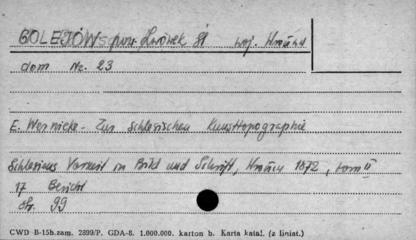 GOLEJÓW pow. Lwówek Śl woj. Wrocław
dom Nr. 23
E. Wernicke - Zur schlesischen Kunsttopographie
Schlesiens Vorzeit in Bild und Schrift, 1872, tom II
17 Bericht
str. 99
CWD B-15b.zam. 2899/P. GDA-8. 1.000.000. karton b. Karta katal. (z liniat.)